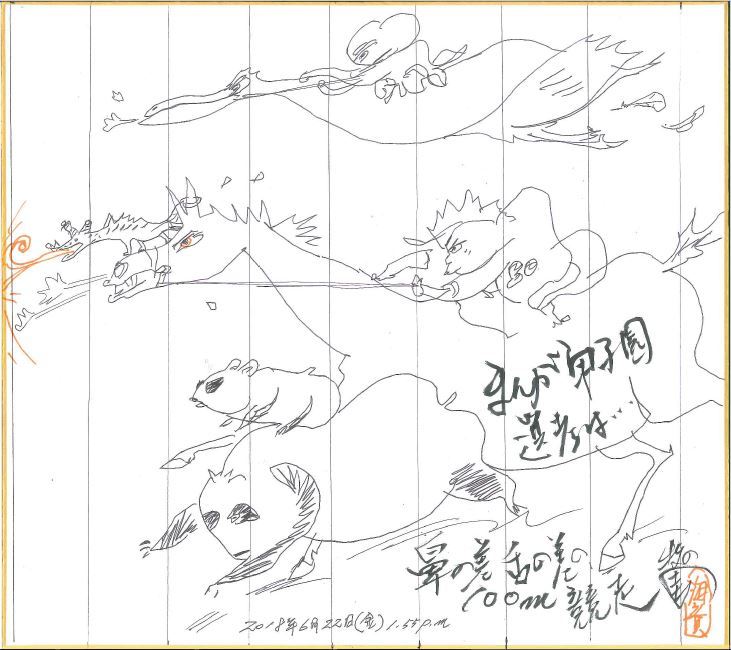 30
まんが甲子園
選考は…
鼻の差舌の差の
100m競走
2018年6月22日(金)1.55p.m